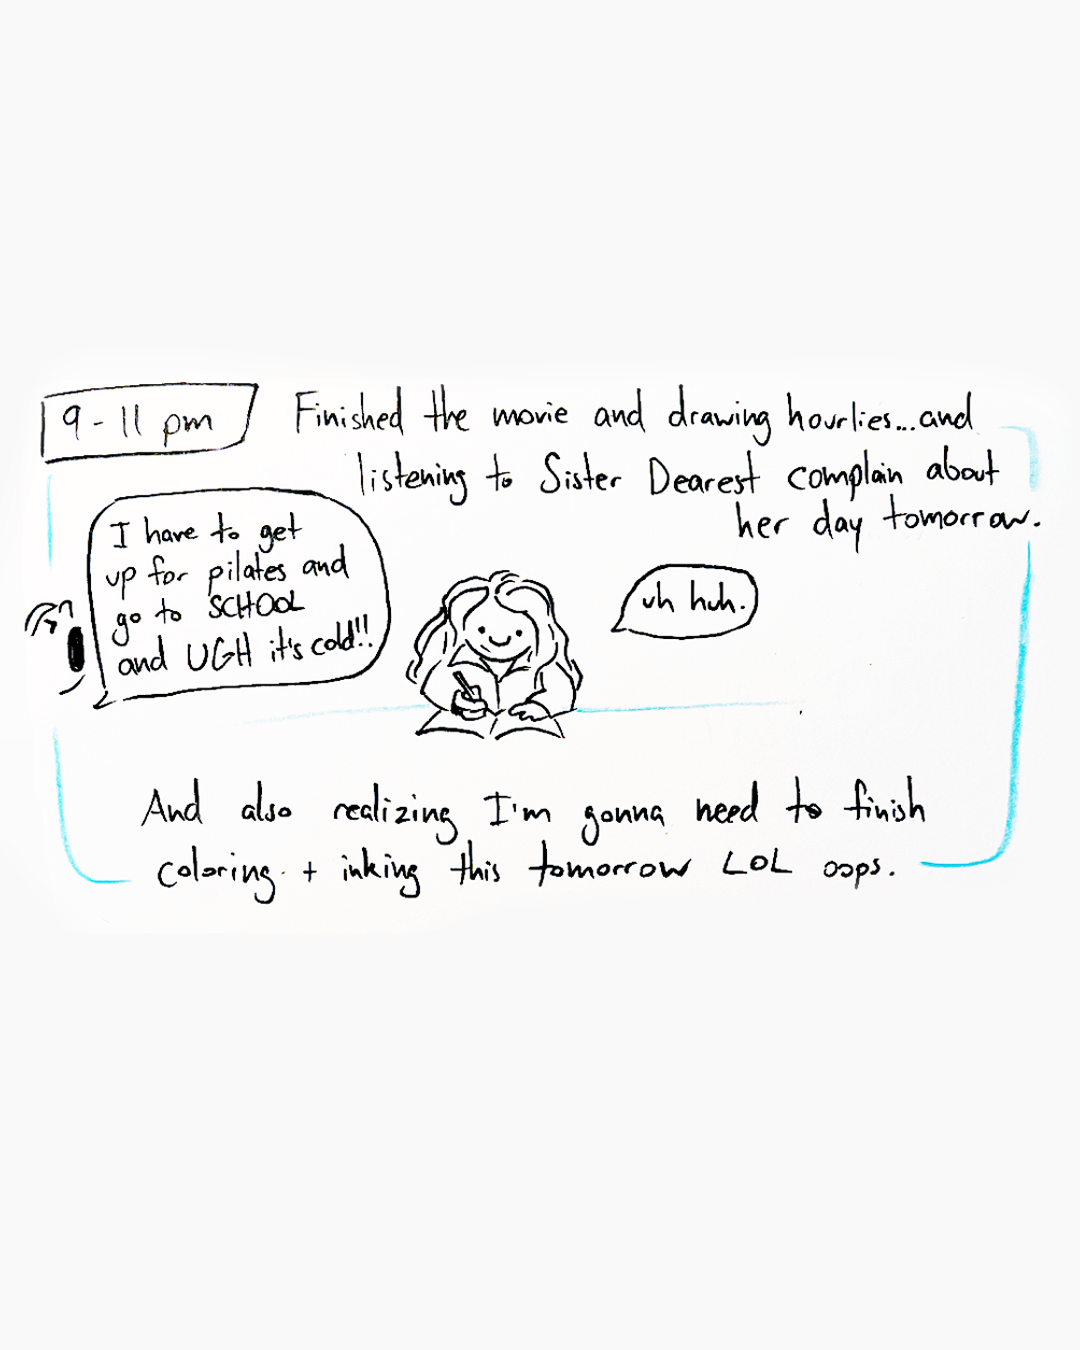 9-11 pm
Finished the movie and drawing hourlies...and
listening to Sister Dearest complain about
her day tomorrow.
I have to get
up for pilates and
go to SCHOOL
and UGH it's cold!!
uh huh.
And also realizing I'm gonna need to finish
coloring + inking this tomorrow LOL oops.